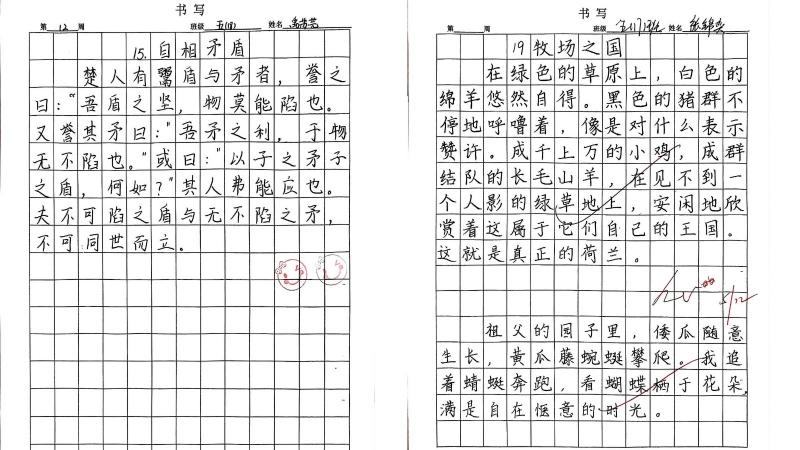 书写
第 12 周 班级 五(四) 姓名
15.自相矛盾
楚人有鬻盾与矛者，誉之
曰："吾盾之坚，物莫能陷也。
又誉其矛曰："吾矛之利，于物
无不陷也。"或曰："以子之矛子
之盾，何如？"其人弗能应也。
夫不可陷之盾与无不陷之矛，
不可同世而立。
书写
第 周 班级 姓名
19牧场之国
在绿色的草原上，白色的
绵羊悠然自得。黑色的猪群不
停地呼噜着，像是对什么表示
赞许。成千上万的小鸡，成群
结队的长毛山羊，在见不到一
个人影的绿草地上，安闲地欣
赏着这属于它们自己的王国。
这就是真正的荷兰。
5/12
祖父的园子里，倭瓜随意
生长，黄瓜藤蜿蜒攀爬。我追
着蜻蜓奔跑，看蝴蝶栖于花朵，
满是自在惬意的时光。